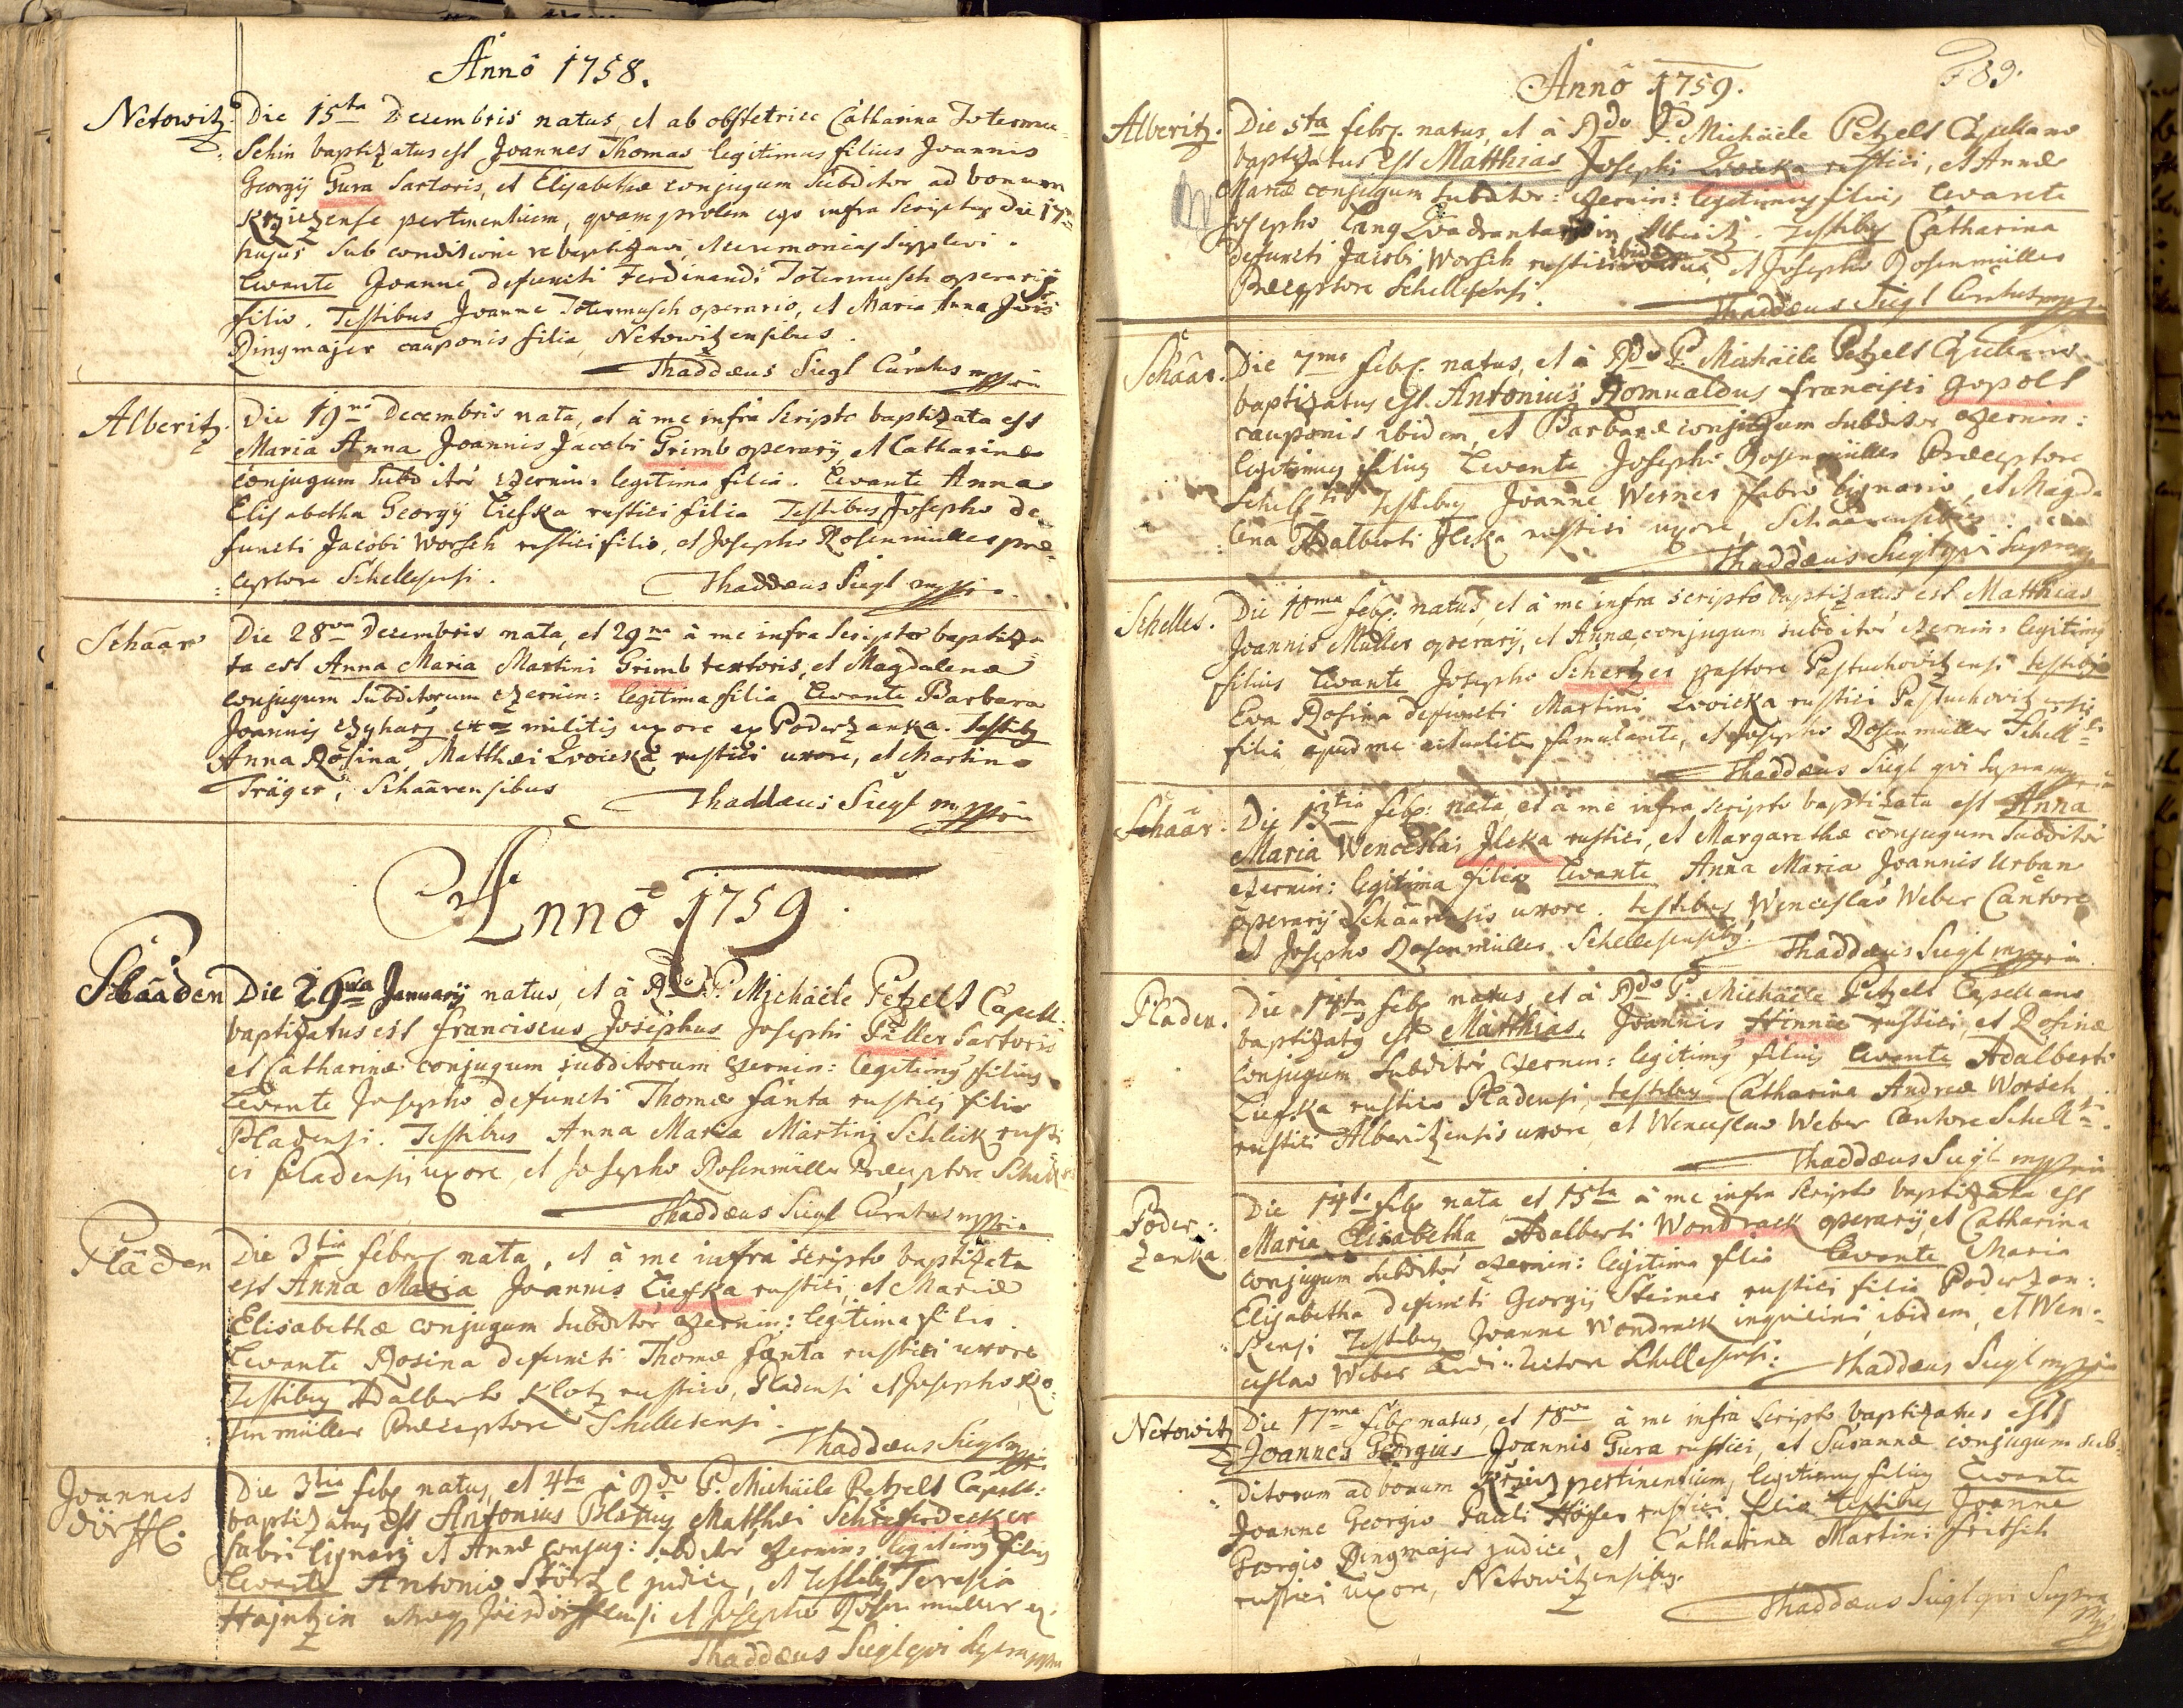 Annô 1758.
Netowitz. Die 15ta Decembris natus, et ab obstetrice Catharina Totermu-
schin baptizatus est Joannes Thomas legitimus filius Joannis
Georgij Gura Sartoris, et Elisabethæ conjugum Subditor ad bonum
pertinentium, quam prolem ego infra Scriptus die 17
hujus Sub conditione rebaptizavi, et ceremonias supplevi.
Levante Joanne defuncti Ferdinandi Totermusch operarij
filio. Testibus Joanne Totermusch operario, et Maria Anna
Ringmajer cauponis filia, Netowitzensibus.
Thaddæus Siegl Curatus mppria
Alberitz. Die 19na Decembris nata, et à me infra Scripto baptizata est
Maria Anna Joannis Jacobi Grimb operarij, et Catharinæ
conjugum Subditor Czernin: legitima filia. Levante Anna
Elisabetha Georgij Liefka rustici filia Testibus Josepho de-
functi Jacobi Worsch rustici filio, et Josepho Rosenmüller præ-
ceptore Schellesensi.
Thaddæus Siegl mppria
Schaar Die 28va Decembris nata, et 29na à me infra Scripto baptiza-
ta est Anna Maria Martini Grimb textoris, et Magdalenæ
conjugum Subditorum Czernin: legitima filia Levante Barbara
Joannis militis uxore ex Poderzanka. Testib9
Anna Rosina, Matthæi Zwicka rustici uxore, et Martino
Träger, Schaarensibus
Thaddæus Siegl mppria
Annô 1759.
Plaaden Die 29na Januarij natus, et à Rdo P. Michäele Petzelt Capell:
baptizatus est Franciscus Josephus Josephi Füller Sartoris
et Catharinæ conjugum subditorum Czernin: legitimus filius
Levante Josepho defuncti Thomæ Fanta rustici filio
Pladensi. Testibus Anna Maria Martini Schlick rusti-
ci Pladensis uxore, et Josepho Rosenmüller Præceptore
Thaddæus Siegl Curatus mppria
Pladen Die 3tia Febru nata, et à me infra scripto baptizata
est Anna Maria Joannis Liefka rustici, et Mariæ
Elisabethæ conjugum Subditor Czernin: legitima filia.
Levante Rosina defuncti Thomæ Fanta rustici uxore
Testibus Adalberto Klotz rustico, Pladensi et Josepho Ro-
senmüller Præceptore Schellesensi.
Thaddæus Siegl mppria
Joannes
dörffl. Die 3tia Feb natus, et 4ta à Rdo P. Michäele Petzelt Capell:
baptizatus est Antonius Blasius Matthæi Schieferdecker
fabri lignarij et Annæ conjug: Subditor Czernin: legitimus filius
Levante Antonio Störtzl judice, et Testibus Teresia
Hajntzin et Josepho Rosenmüller
Thaddæus Siegl qui Supra mppria
Annô 1759.
89.
Alberitz. Die 5ta Febr. natus, et à Rdo P. Michäele Petzelt Capellano
baptizatus est Matthias Josephi Zwicka rustici, et Annæ
Mariæ conjugum Subditor: Czernin: legitimus filius Levante
Josepho Lang in Alberitz. Testibus Catharina
defuncti Jacobi Worsch rustici ibidem vidua, et Josepho Rosenmüller
Præceptore Schellesensi.
Thaddæus Siegl Curatus mppria
Schaar. Die 7ma Feb. natus, et à Rdo P. Michäele Petzelt Capellano
baptizatus est Antonius Romualdus Francisci Gopolt
cauponis ibidem, et Barbaræ conjugum Subditor Czernin:
legitimus filius Levante Josepho Rosenmüller Præceptore
Testibus Joanne Werner fabro lignario, et Magda-
lena Adalberti Jleka rustici uxore, Schaarensibus
Thaddæus Siegl qui Supra
Schelles. Die 10ma Feb: natus, et à me infra scripto baptizatus est Matthias
Joannis Müller operarij, et Annæ, conjugum subditor Czernin: legitimus
filius Levante Josepho Schertzer pastore Pastuchovitzensi testib9
Eva Rosina defuncti Martini Zwicka rustici Pastuchovitzensis
filia apud me famulante, et Josepho Rosenmüller
Thaddæus Siegl qui Supra mppria
Schaar. Die 13tia Feb: nata, et à me infra scripto baptizata est Anna
Maria Wenceslai Jleka rustici, et Margarethæ conjugum Subditor
Czernin: legitima filia Levante Anna Maria Joannis Urban
operarij Schaarensis uxore. testibus Wenceslao Weber Cantore
et Josepho Rosenmüller Schellesensib9.
Thaddæus Siegl mppria
Pladen. Die 14ta Feb natus, et à Rdo P. Michäele Petzelt Capellano
baptizatus est Matthias, Joannis Hinnie rustici, et Rosinæ
conjugum Subditor Czernin: legitimus filius Levante Adalberto
Liefka rustico Pladensi, testibus Catharina Andreæ Worsch
rustici Alberitzensis uxore, et Wenceslao Weber Cantore
Thaddæus Siegl mppria
Poder:
zanka Die 14ta Feb nata et 15ta à me infra scripto baptizata est
Maria Elisabetha Adalberti Wondrack operarij, et Catharina
conjugum Subditor Czernin: legitima filia Levante Maria
Elisabetha defuncti Georgij Steiner rustici filia Poderzan-
kensi Testibus Joanne Wondrack inquilini ibidem, et Wen-
ceslao Weber Schellesensi:
Thaddæus Siegl mppria
Netowitz Die 17ma Feb natus, et 18va à me infra scripto baptizatus est
Joannes Georgius Joannis Gura rustici, et Susannæ conjugum sub-
ditorum ad bonum pertinentium, legitimus filius Levante
Joanne Georgio Pauli Höfer rustici filio Testibus Joanne
Georgio Ringmajer judice, et Catharina Martini Fritsch
rustici uxore, Netowitzensibus.
Thaddæus Siegl qui Supra